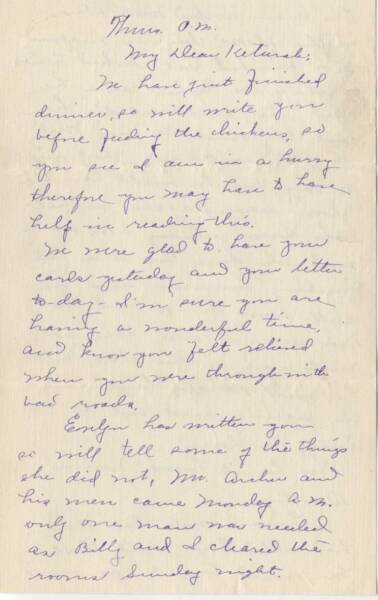 Thurs. P.M.
My Dear Keturah:
We have just finished
dinner, so will write you
before feeding the chickens, so
you see I am in a hurry
therefore you may have to have
help in reading this.
We were glad to have your
cards yesterday and your letter
to-day - I'm sure you are
having a wonderful time,
and know you felt relieved
when you were through with
bad roads.
Evelyn has written you
so will tell some of the things
she did not, Mr. Archer and
his men came Monday A.M.
only one man was needed
as Billy and I cleared the
rooms Sunday night.